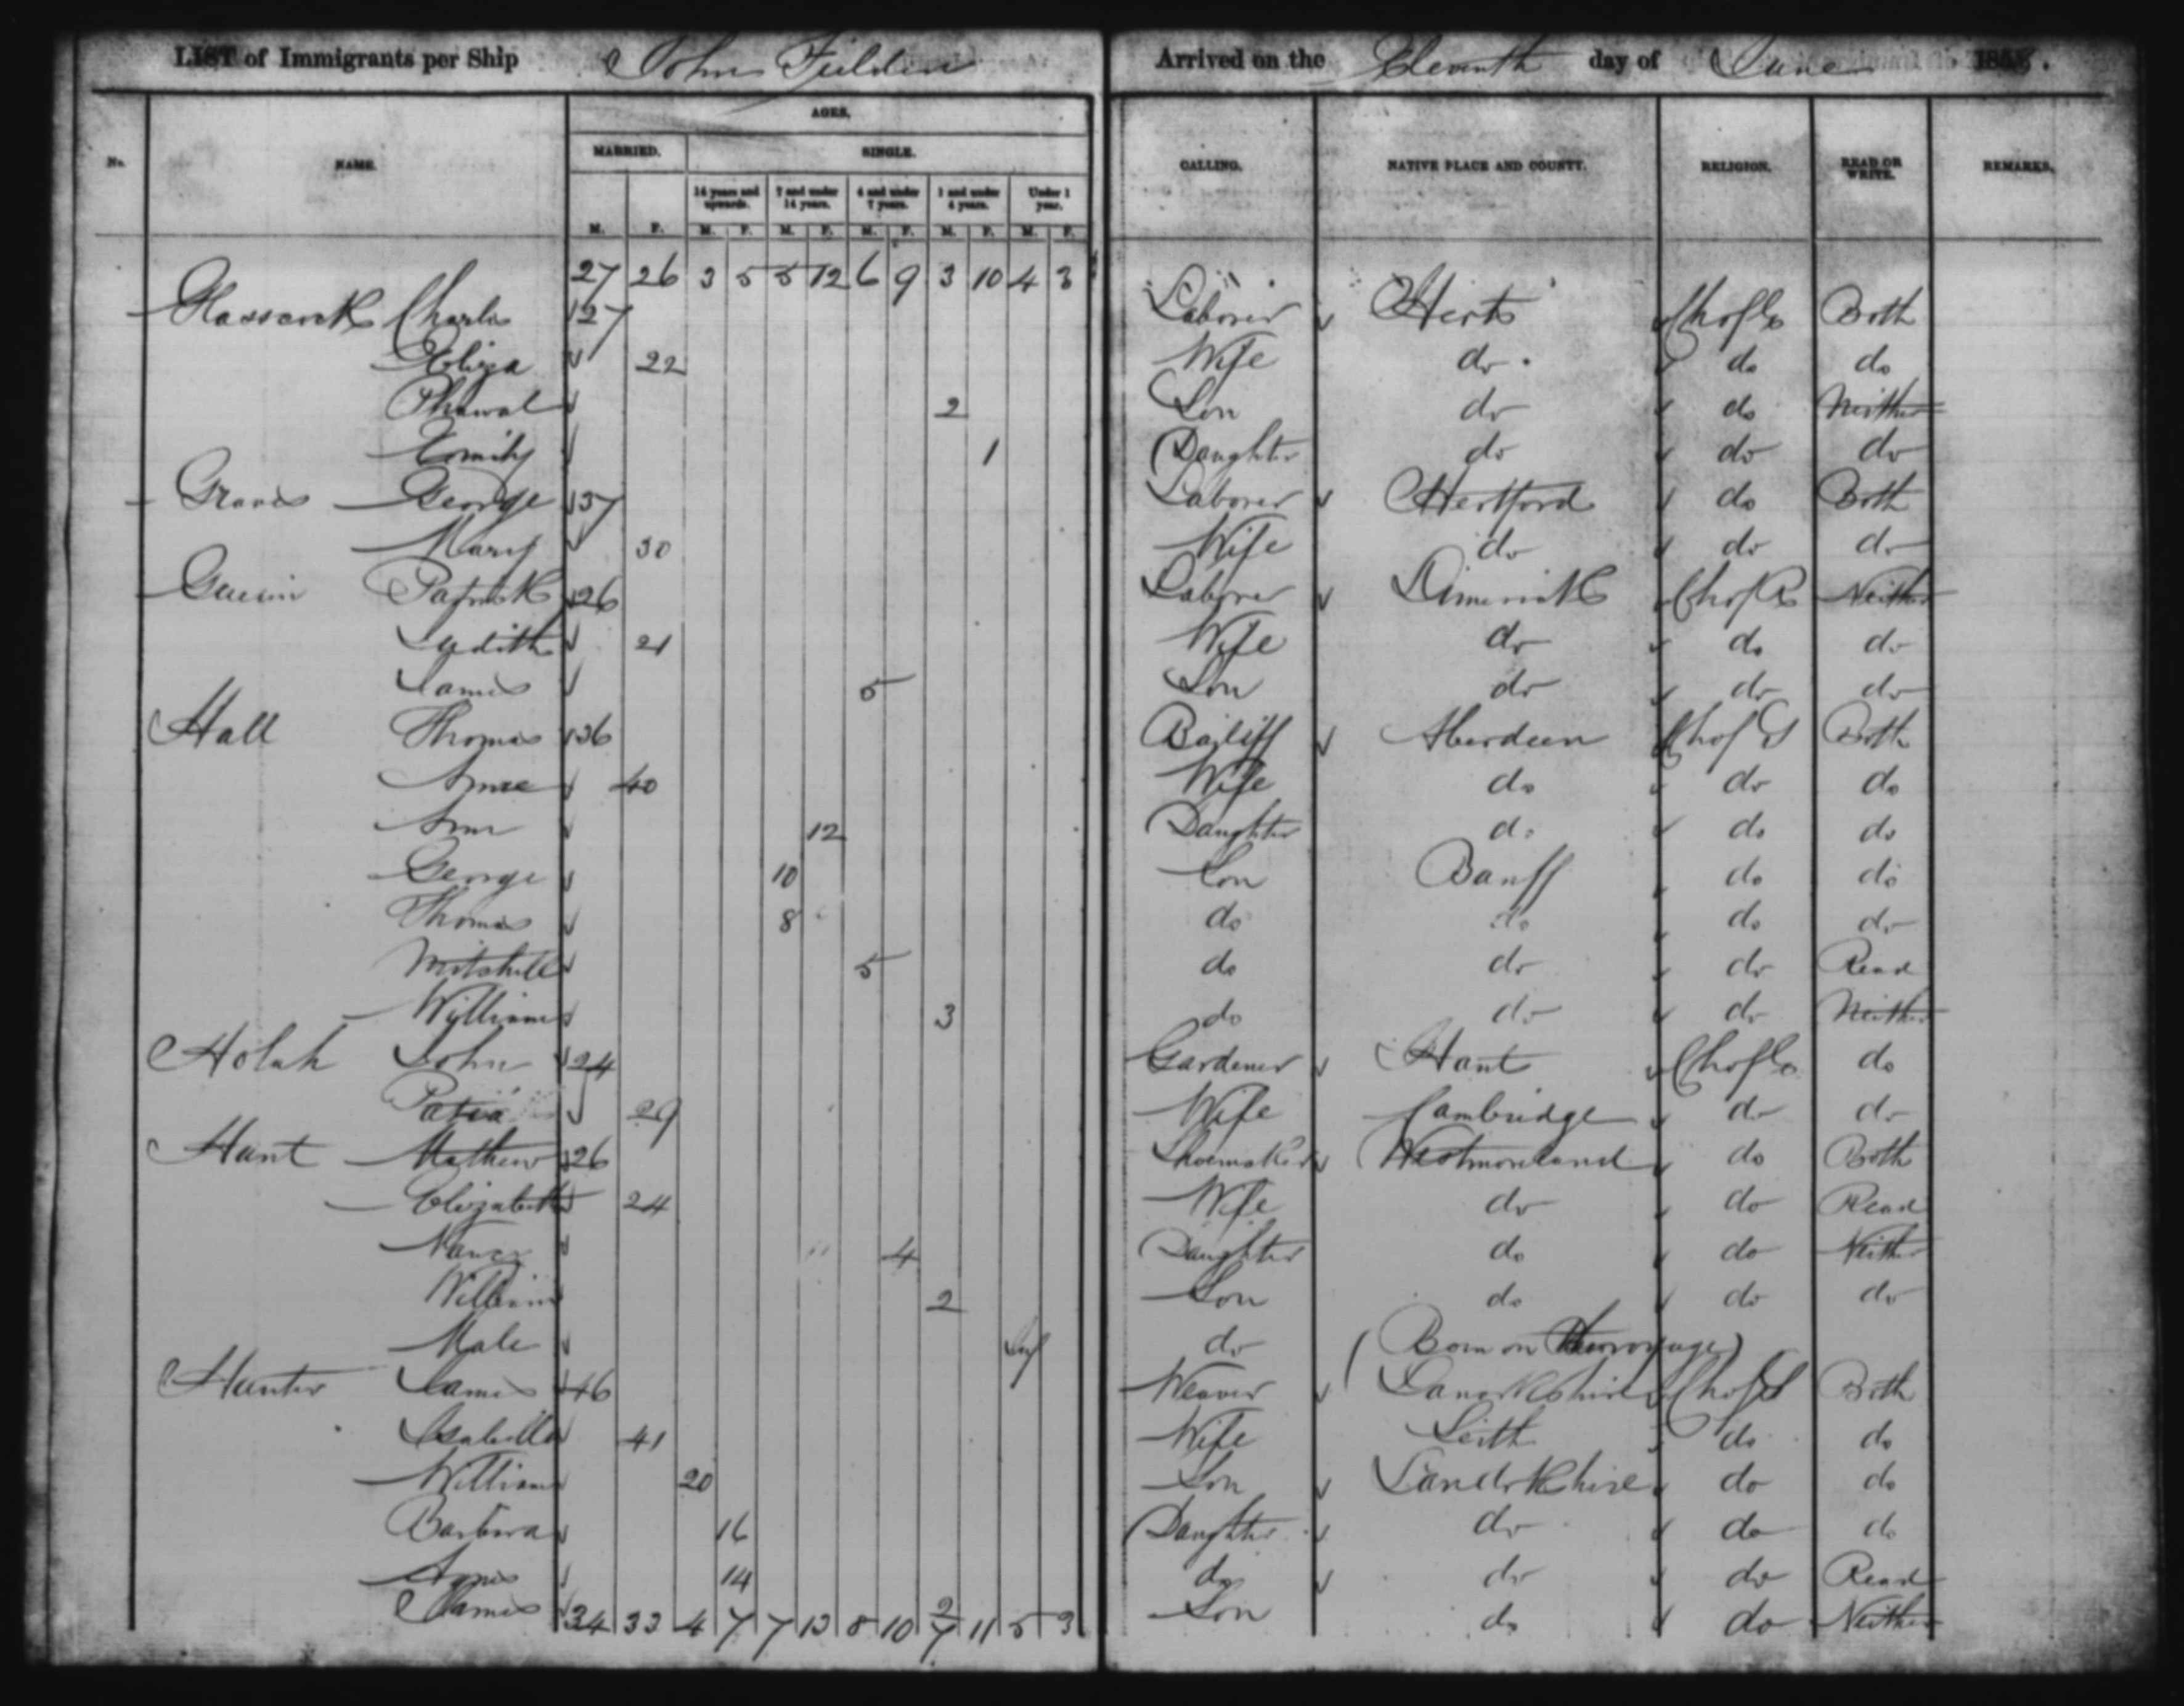 LIST of Immigrants per Ship John Fielden Arrived on the Eleventh day of June 185
No. NAME. AGES. CALLING. NATIVE PLACE AND COUNTY. RELIGION. READ OR WRITE. REMARKS.
MARRIED. SINGLE.
14 years and upwards. 7 and under 14 years. 4 and under 7 years. 1 and under 4 years. Under 1 year.
M. F. M. F. M. F. M. F. M. F. M. F.
27 26 3 5 5 12 6 9 3 10 4 3
Charles 27 Laborer Herts Ch of E Both
Eliza 22 Wife do do do
2 Son do do Neither
Emily 1 Daughter do do do
Graves George 37 Laborer Hertford do Both
Mary 30 Wife do do do
Patrick 26 Laborer Limerick Ch of R Neither
Judith 21 Wife do do do
James 5 Son do do do
Hall Thomas 36 Bailiff Aberdeen Ch of S Both
Anne 40 Wife do do do
Ann 12 Daughter do do do
George 10 Son Banff do do
Thomas 8 do do do do
Mitchell 5 do do do Read
William 3 do do do Neither
Holah John 24 Gardener Hant Ch of E do
29 Wife Cambridge do do
Hunt Mathew 26 Shoemaker Westmoreland do Both
Elizabeth 24 Wife do do Read
Nancy 4 Daughter do do Neither
William 2 Son do do do
Male Inf do (Born on the voyage)
Hunter James 46 Weaver Lanarkshire Ch of S Both
Isabella 41 Wife Leith do do
William 20 Son Lanarkshire do do
Barbara 16 Daughter do do do
Agnes 14 do do do Read
James 2 Son do do Neither
34 33 4 7 7 13 8 10 7 11 5 3